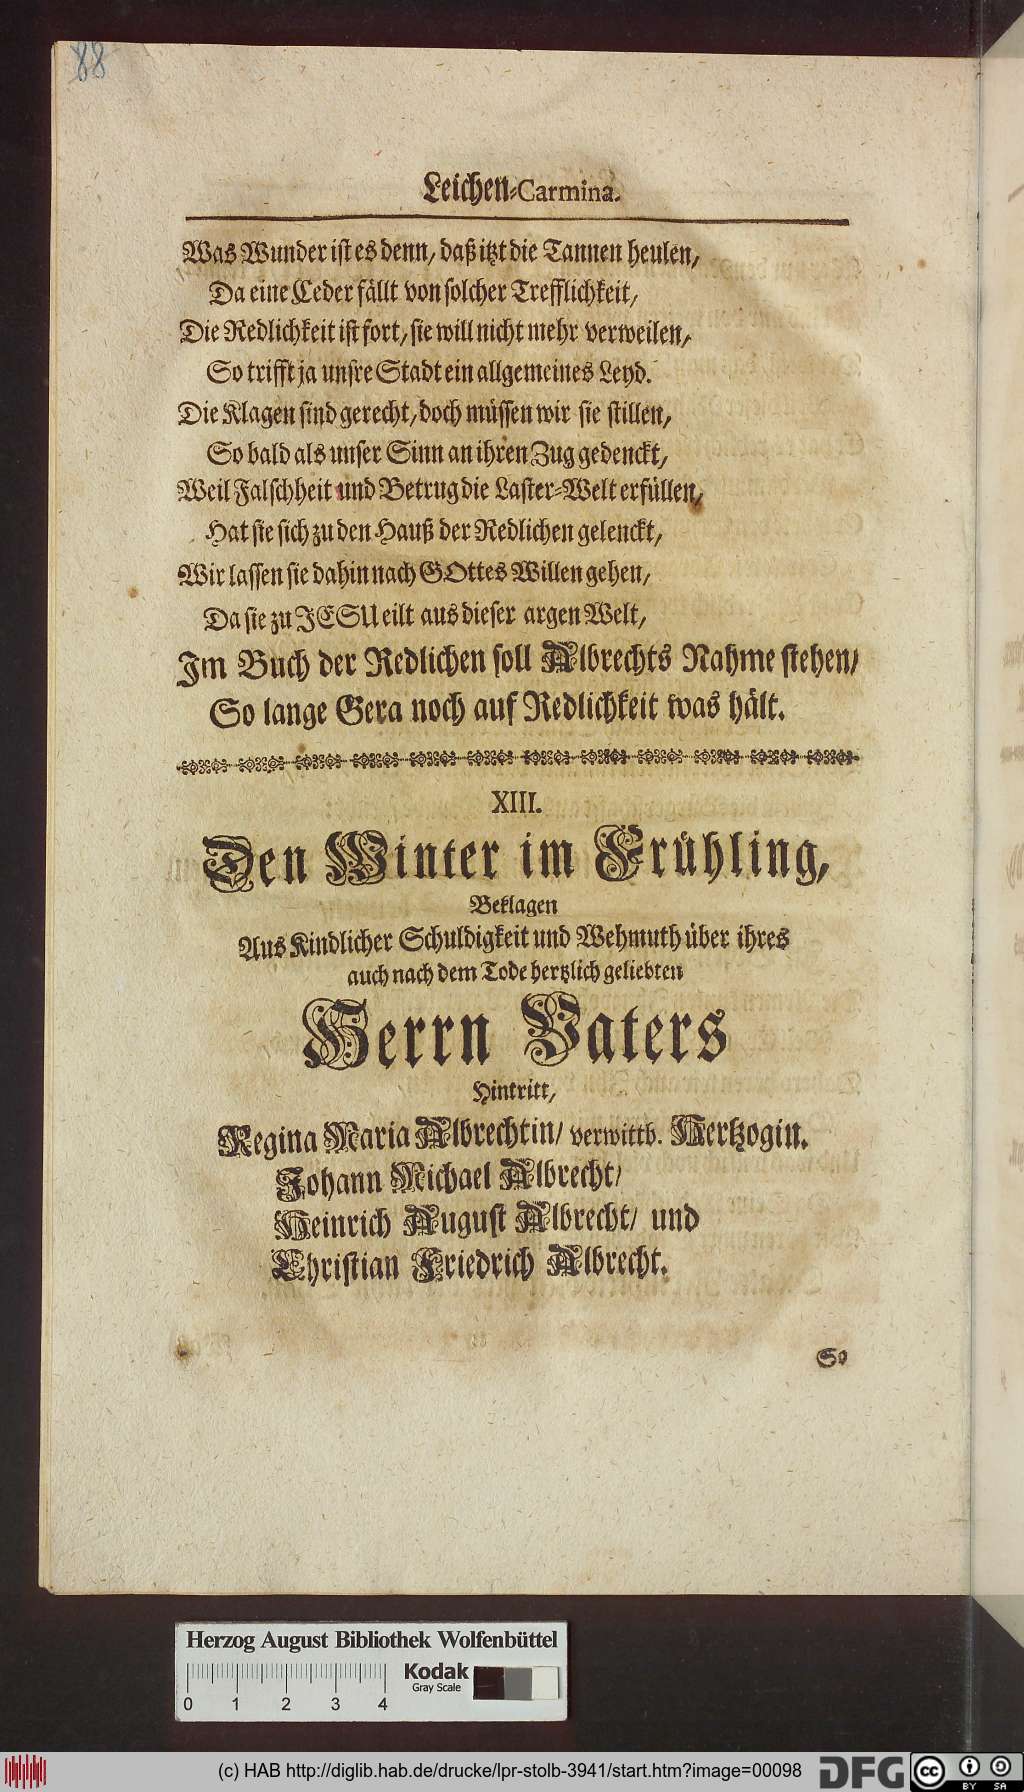 88
Leichen-Carmina.
Was Wunder ist es denn, daß itzt die Tannen heulen,
Da eine Ceder fällt von solcher Trefflichkeit,
Die Redlichkeit ist fort, sie will nicht mehr verweilen,
So trifft ja unsre Stadt ein allgemeines Leyd.
Die Klagen sind gerecht, doch müssen wir sie stillen,
So bald als unser Sinn an ihren Zug gedenckt,
Weil Falschheit und Betrug die Laster-Welt erfüllen,
Hat sie sich zu den Hauß der Redlichen gelenckt,
Wir lassen sie dahin nach GOttes Willen gehen,
Da sie zu JESU eilt aus dieser argen Welt,
Im Buch der Redlichen soll Albrechts Nahme stehen/
So lange Gera noch auf Redlichkeit was hält.
XIII.
Den Winter im Frühling,
Beklagen
Aus Kindlicher Schuldigkeit und Wehmuth über ihres
auch nach dem Tode hertzlich geliebten
Herrn Vaters
Hintritt,
Regina Maria Albrechtin/ verwittb. Hertzogin.
Johann Michael Albrecht/
Heinrich August Albrecht/ und
Christian Friedrich Albrecht.
So
Herzog August Bibliothek Wolfenbüttel
Kodak
Gray Scale
0 1 2 3 4
(c) HAB http://diglib.hab.de/drucke/lpr-stolb-3941/start.htm?image=00098
DFG
cc BY SA